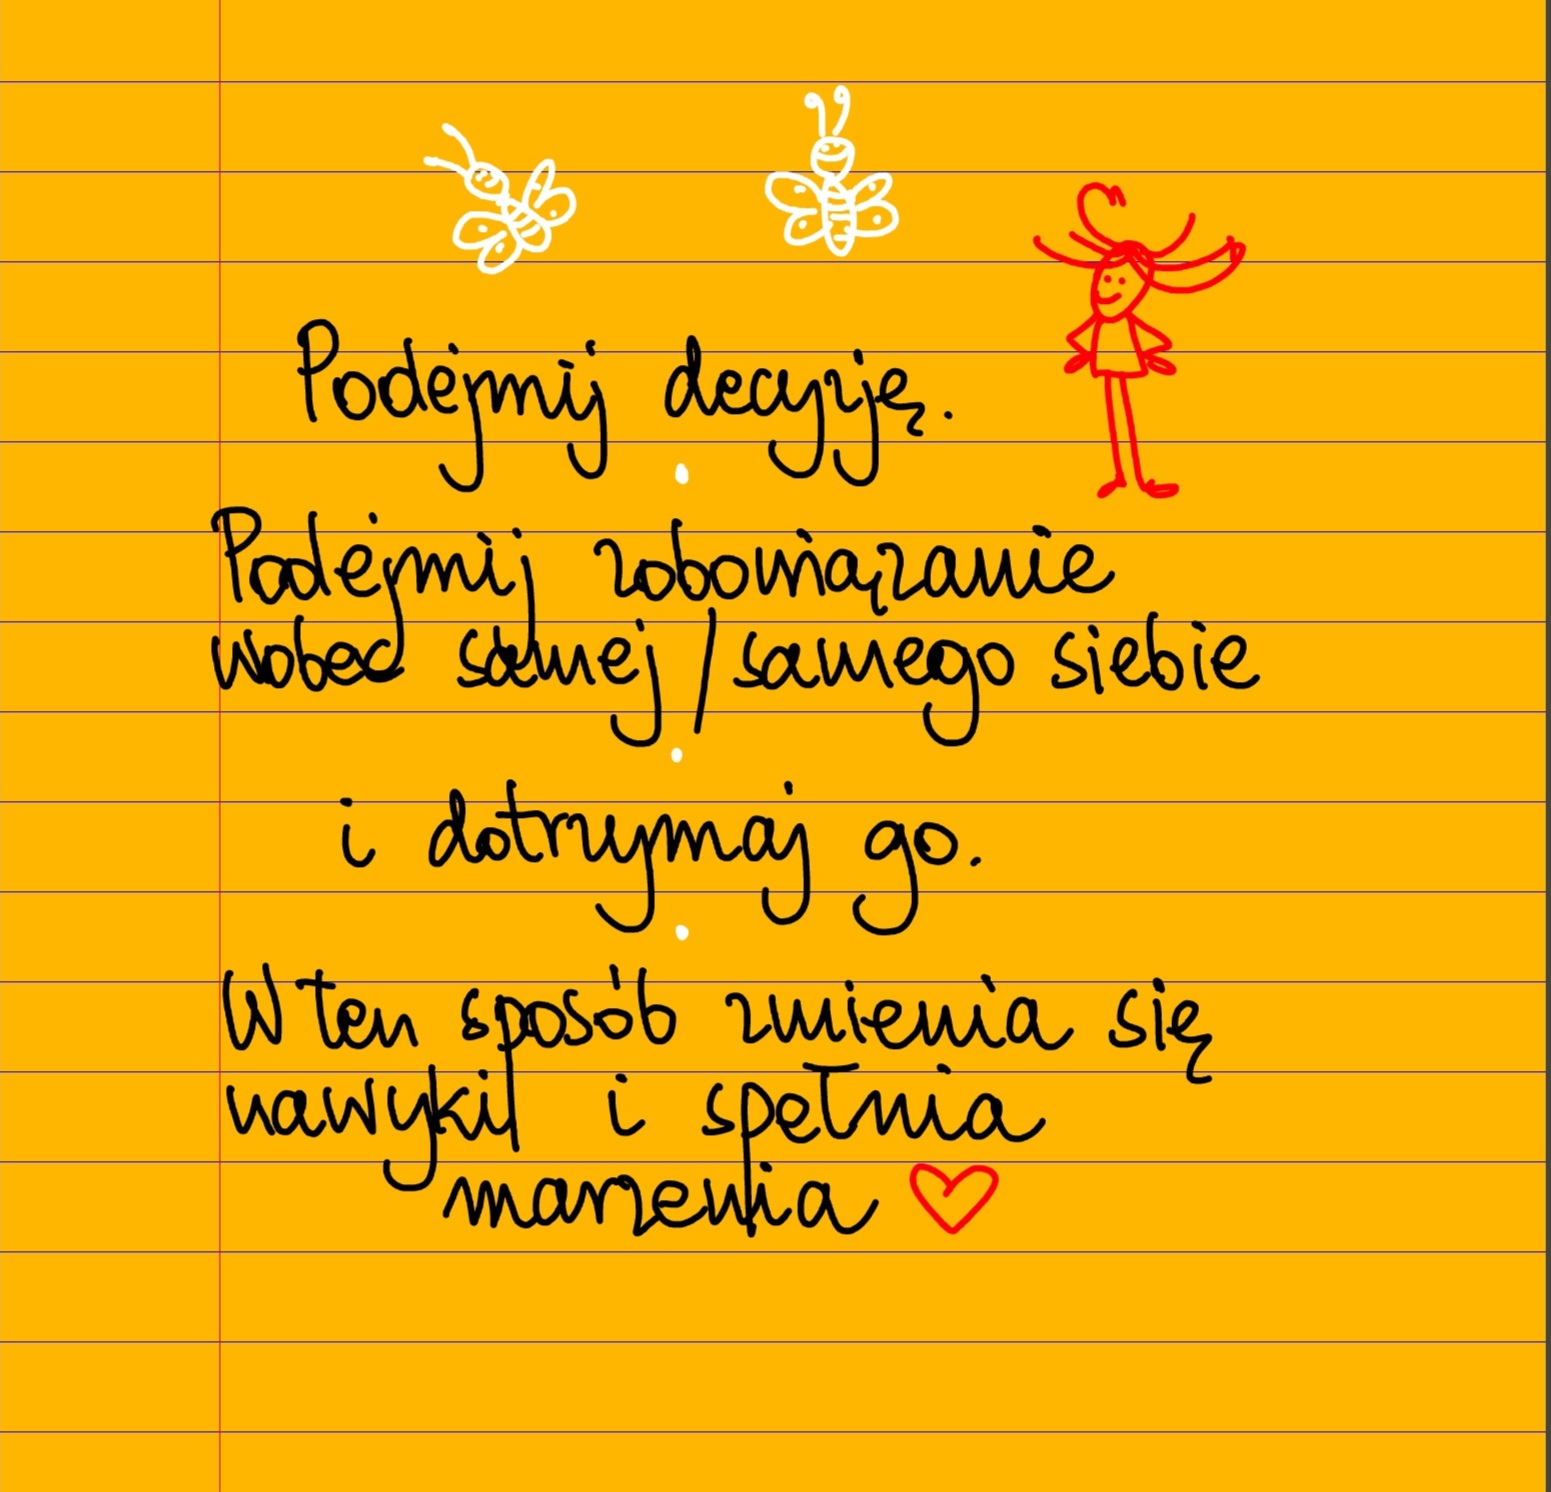 Podejmij decyzję.
Podejmij zobowiązanie
wobec samej / samego siebie
i dotrzymaj go.
W ten sposób zmienia się
nawyki i spełnia
marzenia